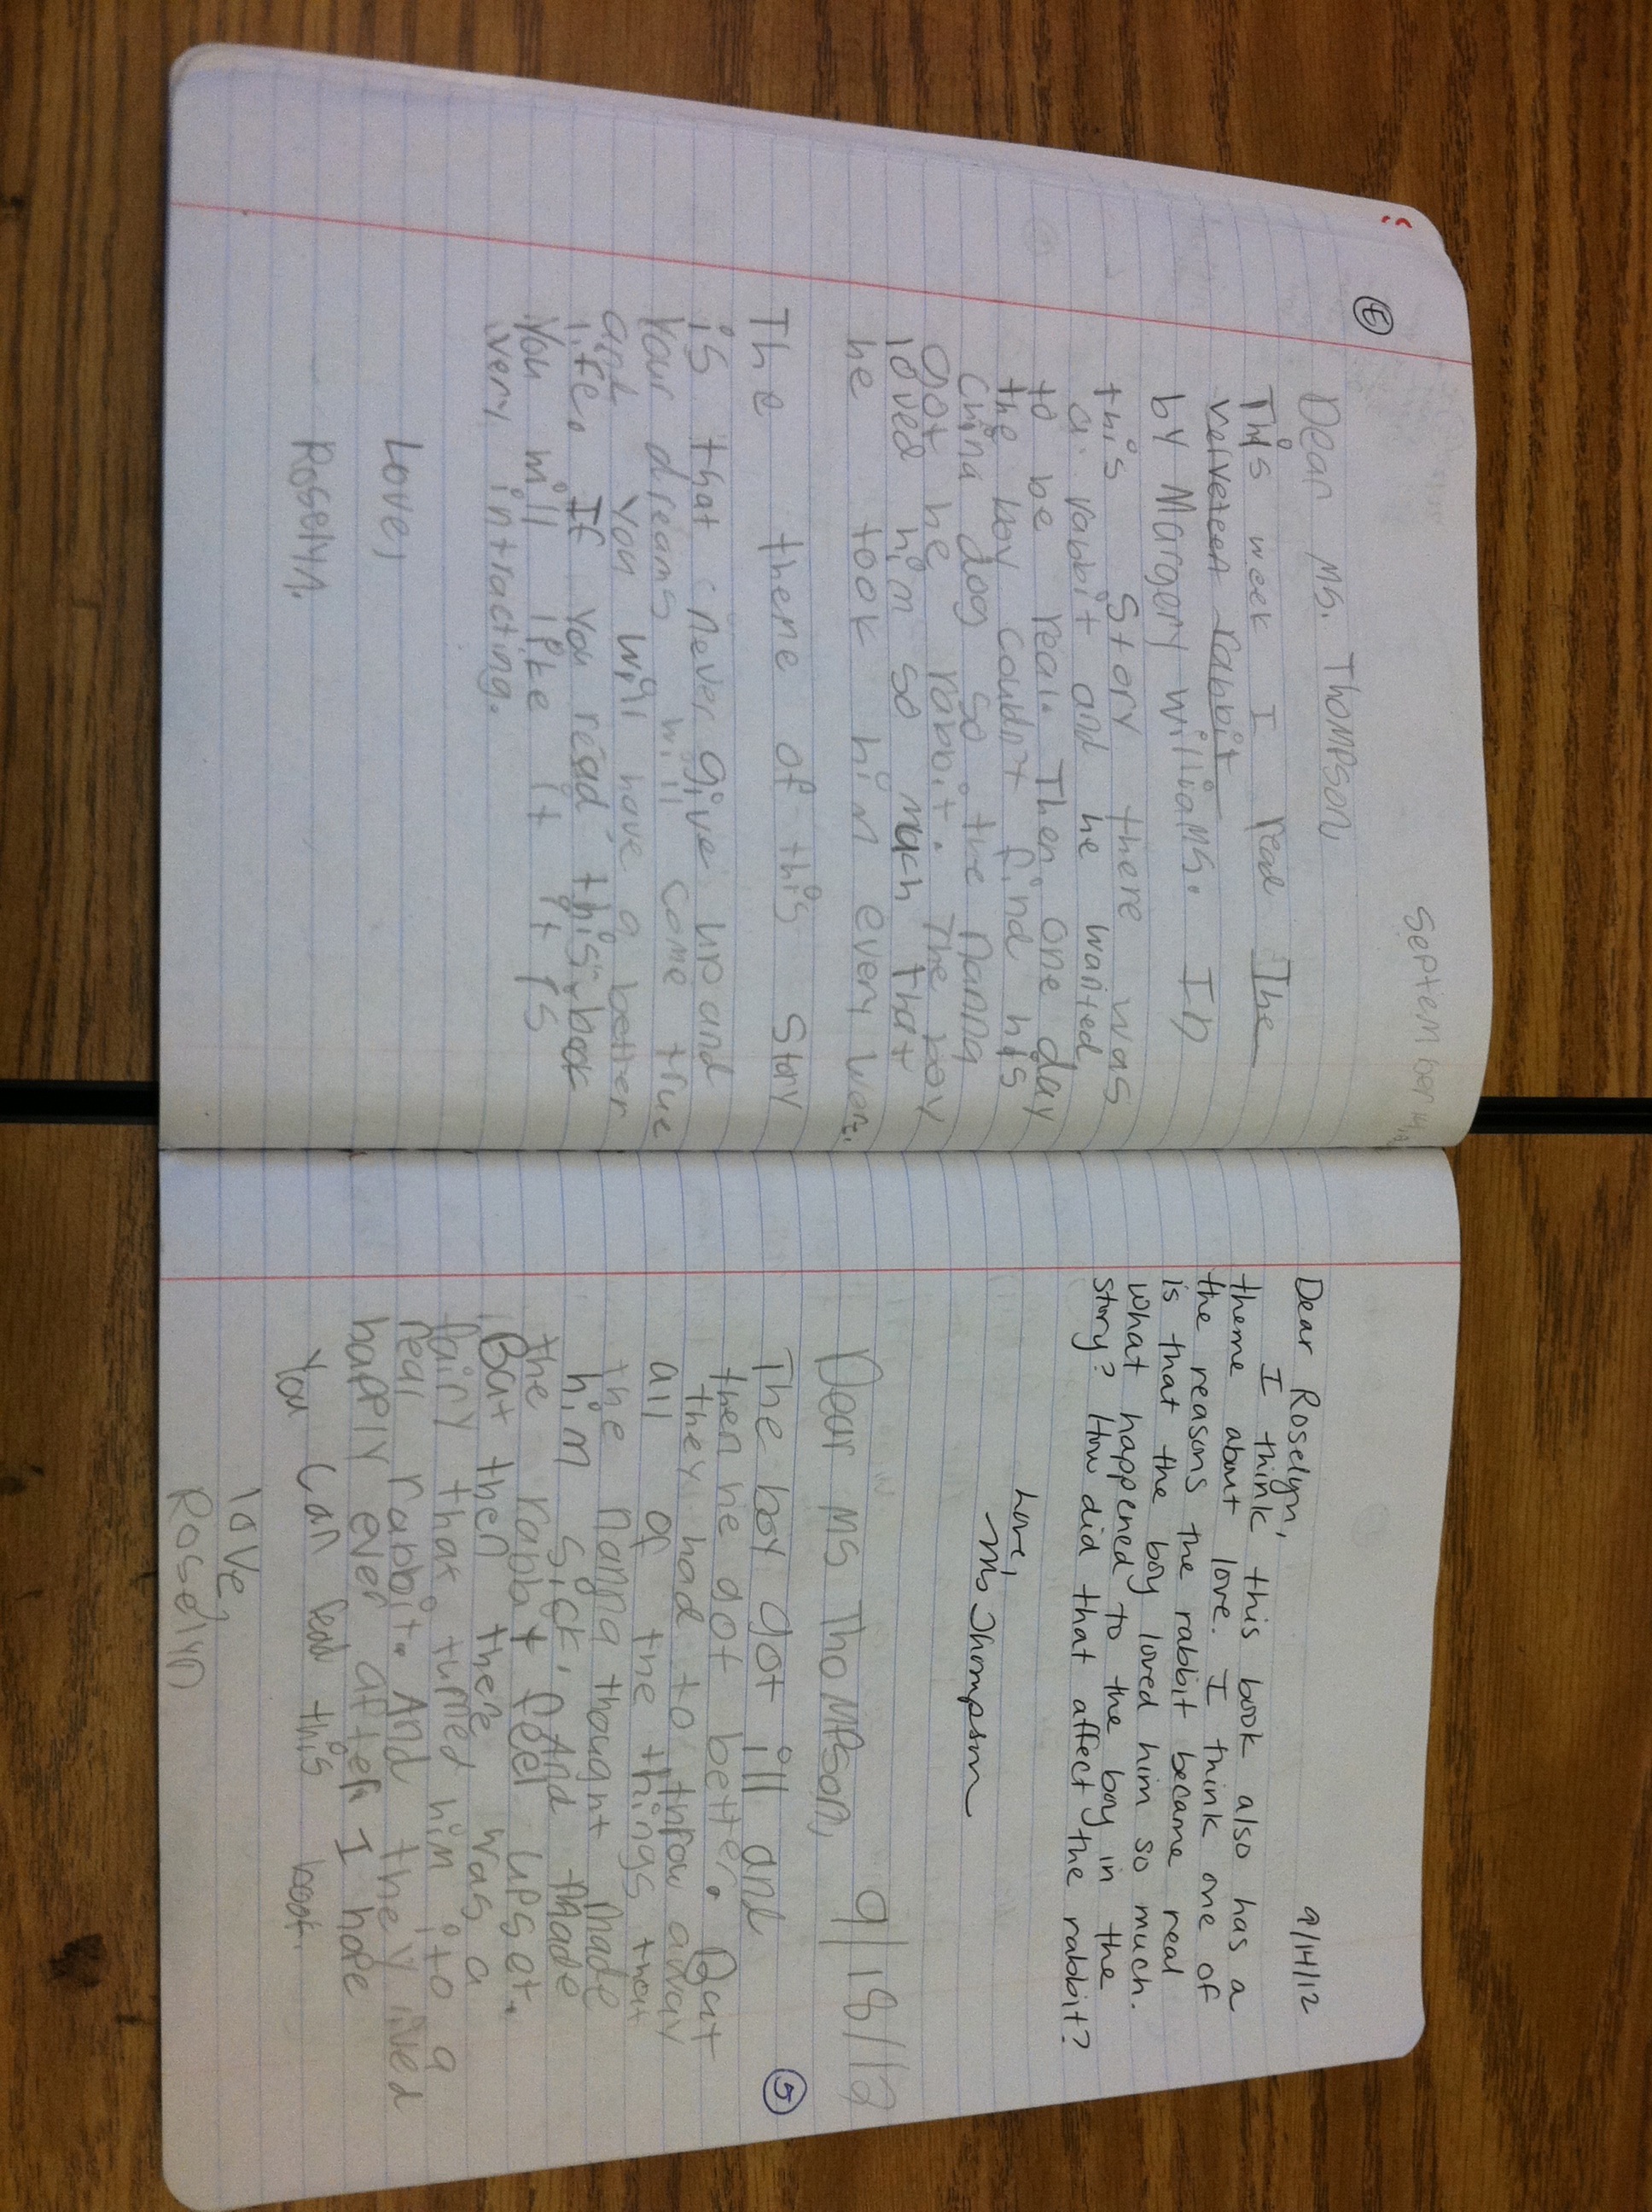 September 14, 12
6
Dear Ms. Thompson,
This week I read The
velveteen rabbit
by Margery Williams. In
this story there was
a rabbit and he wanted
to be real. Then one day
the boy coudn't find his
china dog so the nanna
got he rabbit. The boy
loved him so much that
he took him every wer.
The thene of this story
is that never give up and
Your dreams will come true
and you will have a better
life. If you read this book
You will like it it is
very intracting.
Love,
Roselyn.
9/14/12
Dear Roselyn,
I think this book also has a
theme about love. I think one of
the reasons the rabbit became real
is that the boy loved him so much.
What happened to the boy in the
story? How did that affect the rabbit?
Love,
Ms Thompson
9/18/12
Dear Ms Thompson,
5
The boy got ill and
then he got better. But
they had to throw away
all of the things that
the nanna thought made
him sick. And made
the rabbit feel upset.
But then there was a
fairy that turned him ito a
real rabbit. And they lived
happly ever after. I hope
You can read this book.
love,
Roselyn